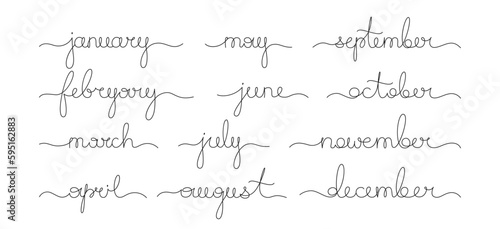 january
febryary
march
april
may
june
july
august
september
october
november
december
Adobe Stock | #595162883